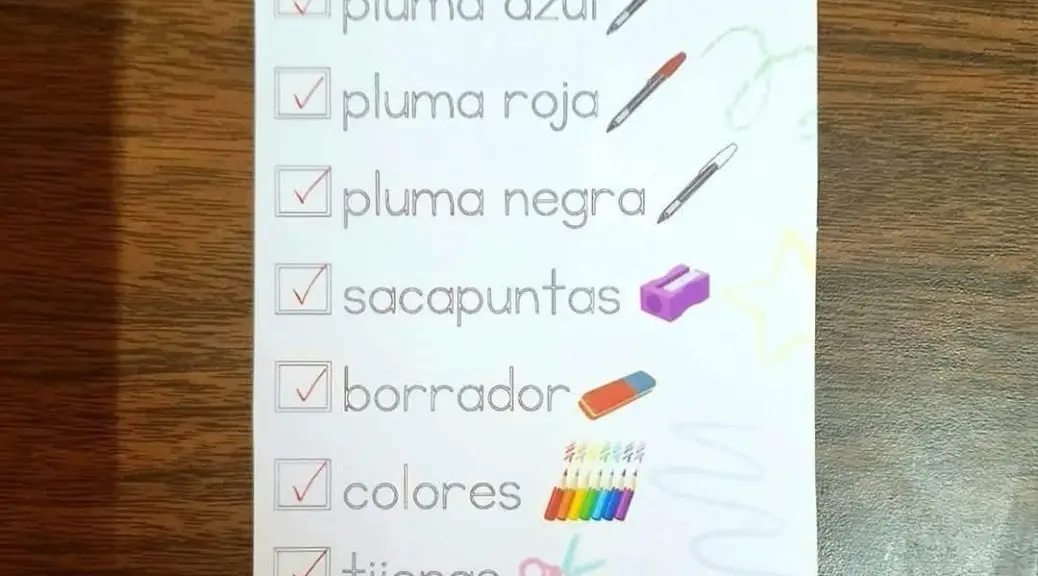 pluma azul
pluma roja
pluma negra
sacapuntas
borrador
colores
tijeras